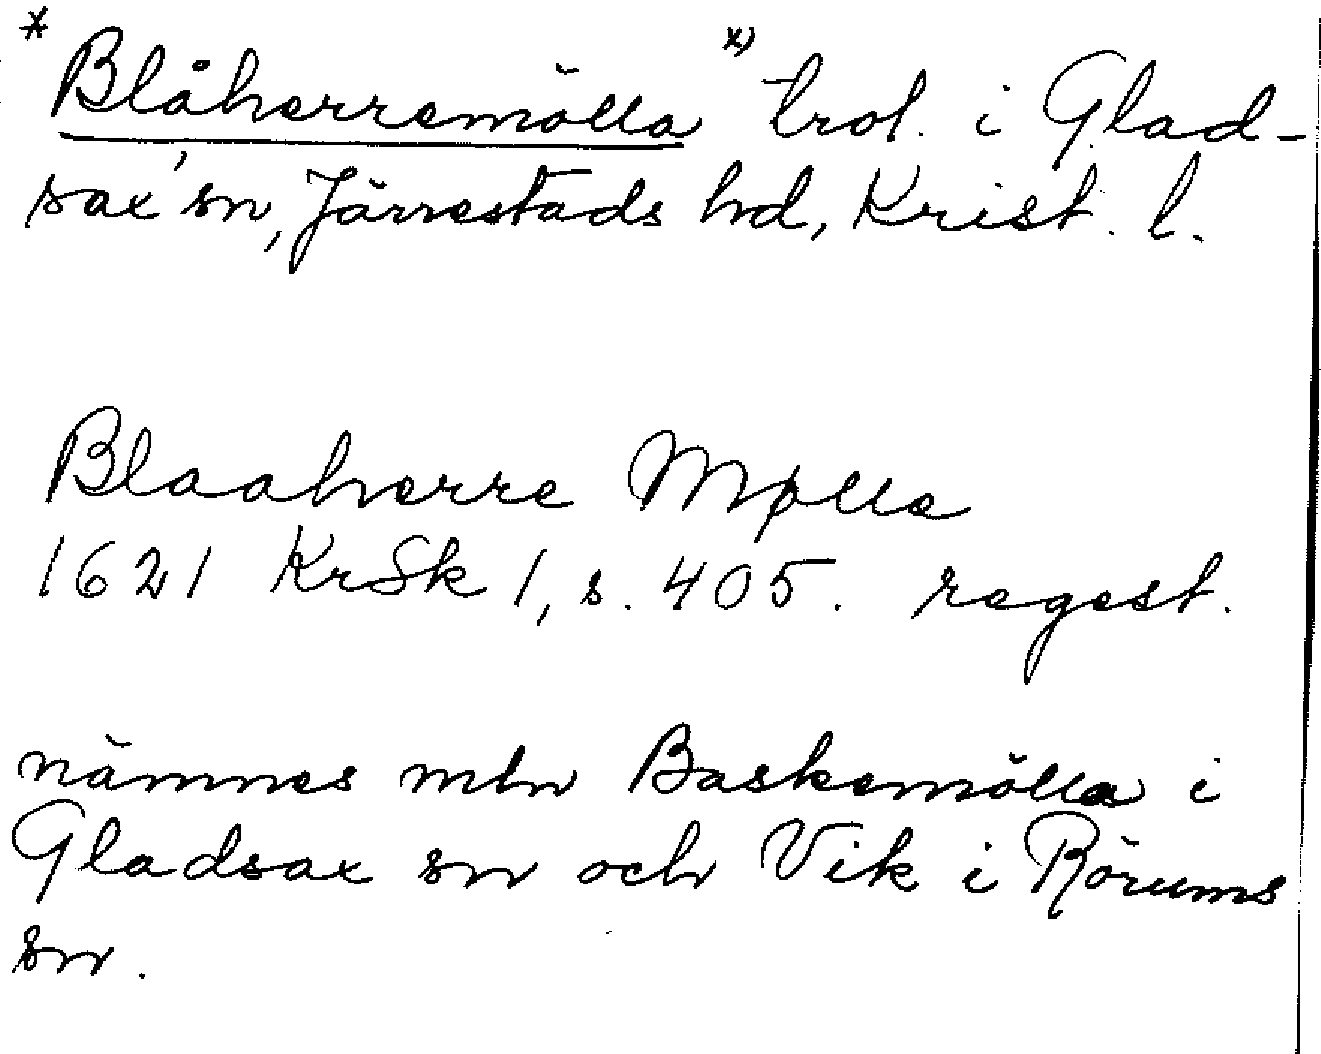 * Blåherremölla *) trol. i Glad-
sax sn, Järrestads hd, Krist. l.
Blaaherre Mølle
1621 KrSk 1, s. 405. regest.
nämnes mln Baskemölla i
Gladsax sn och Vik i Rörums
sn.